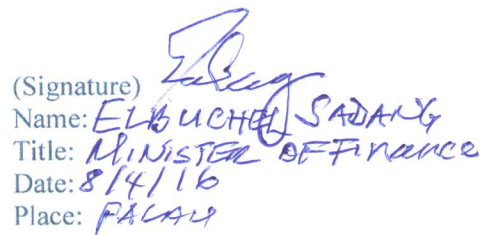 (Signature)
Name: ELBUCHEL SADANG
Title: MINISTER OF Finance
Date: 8/4/16
Place: PALAU